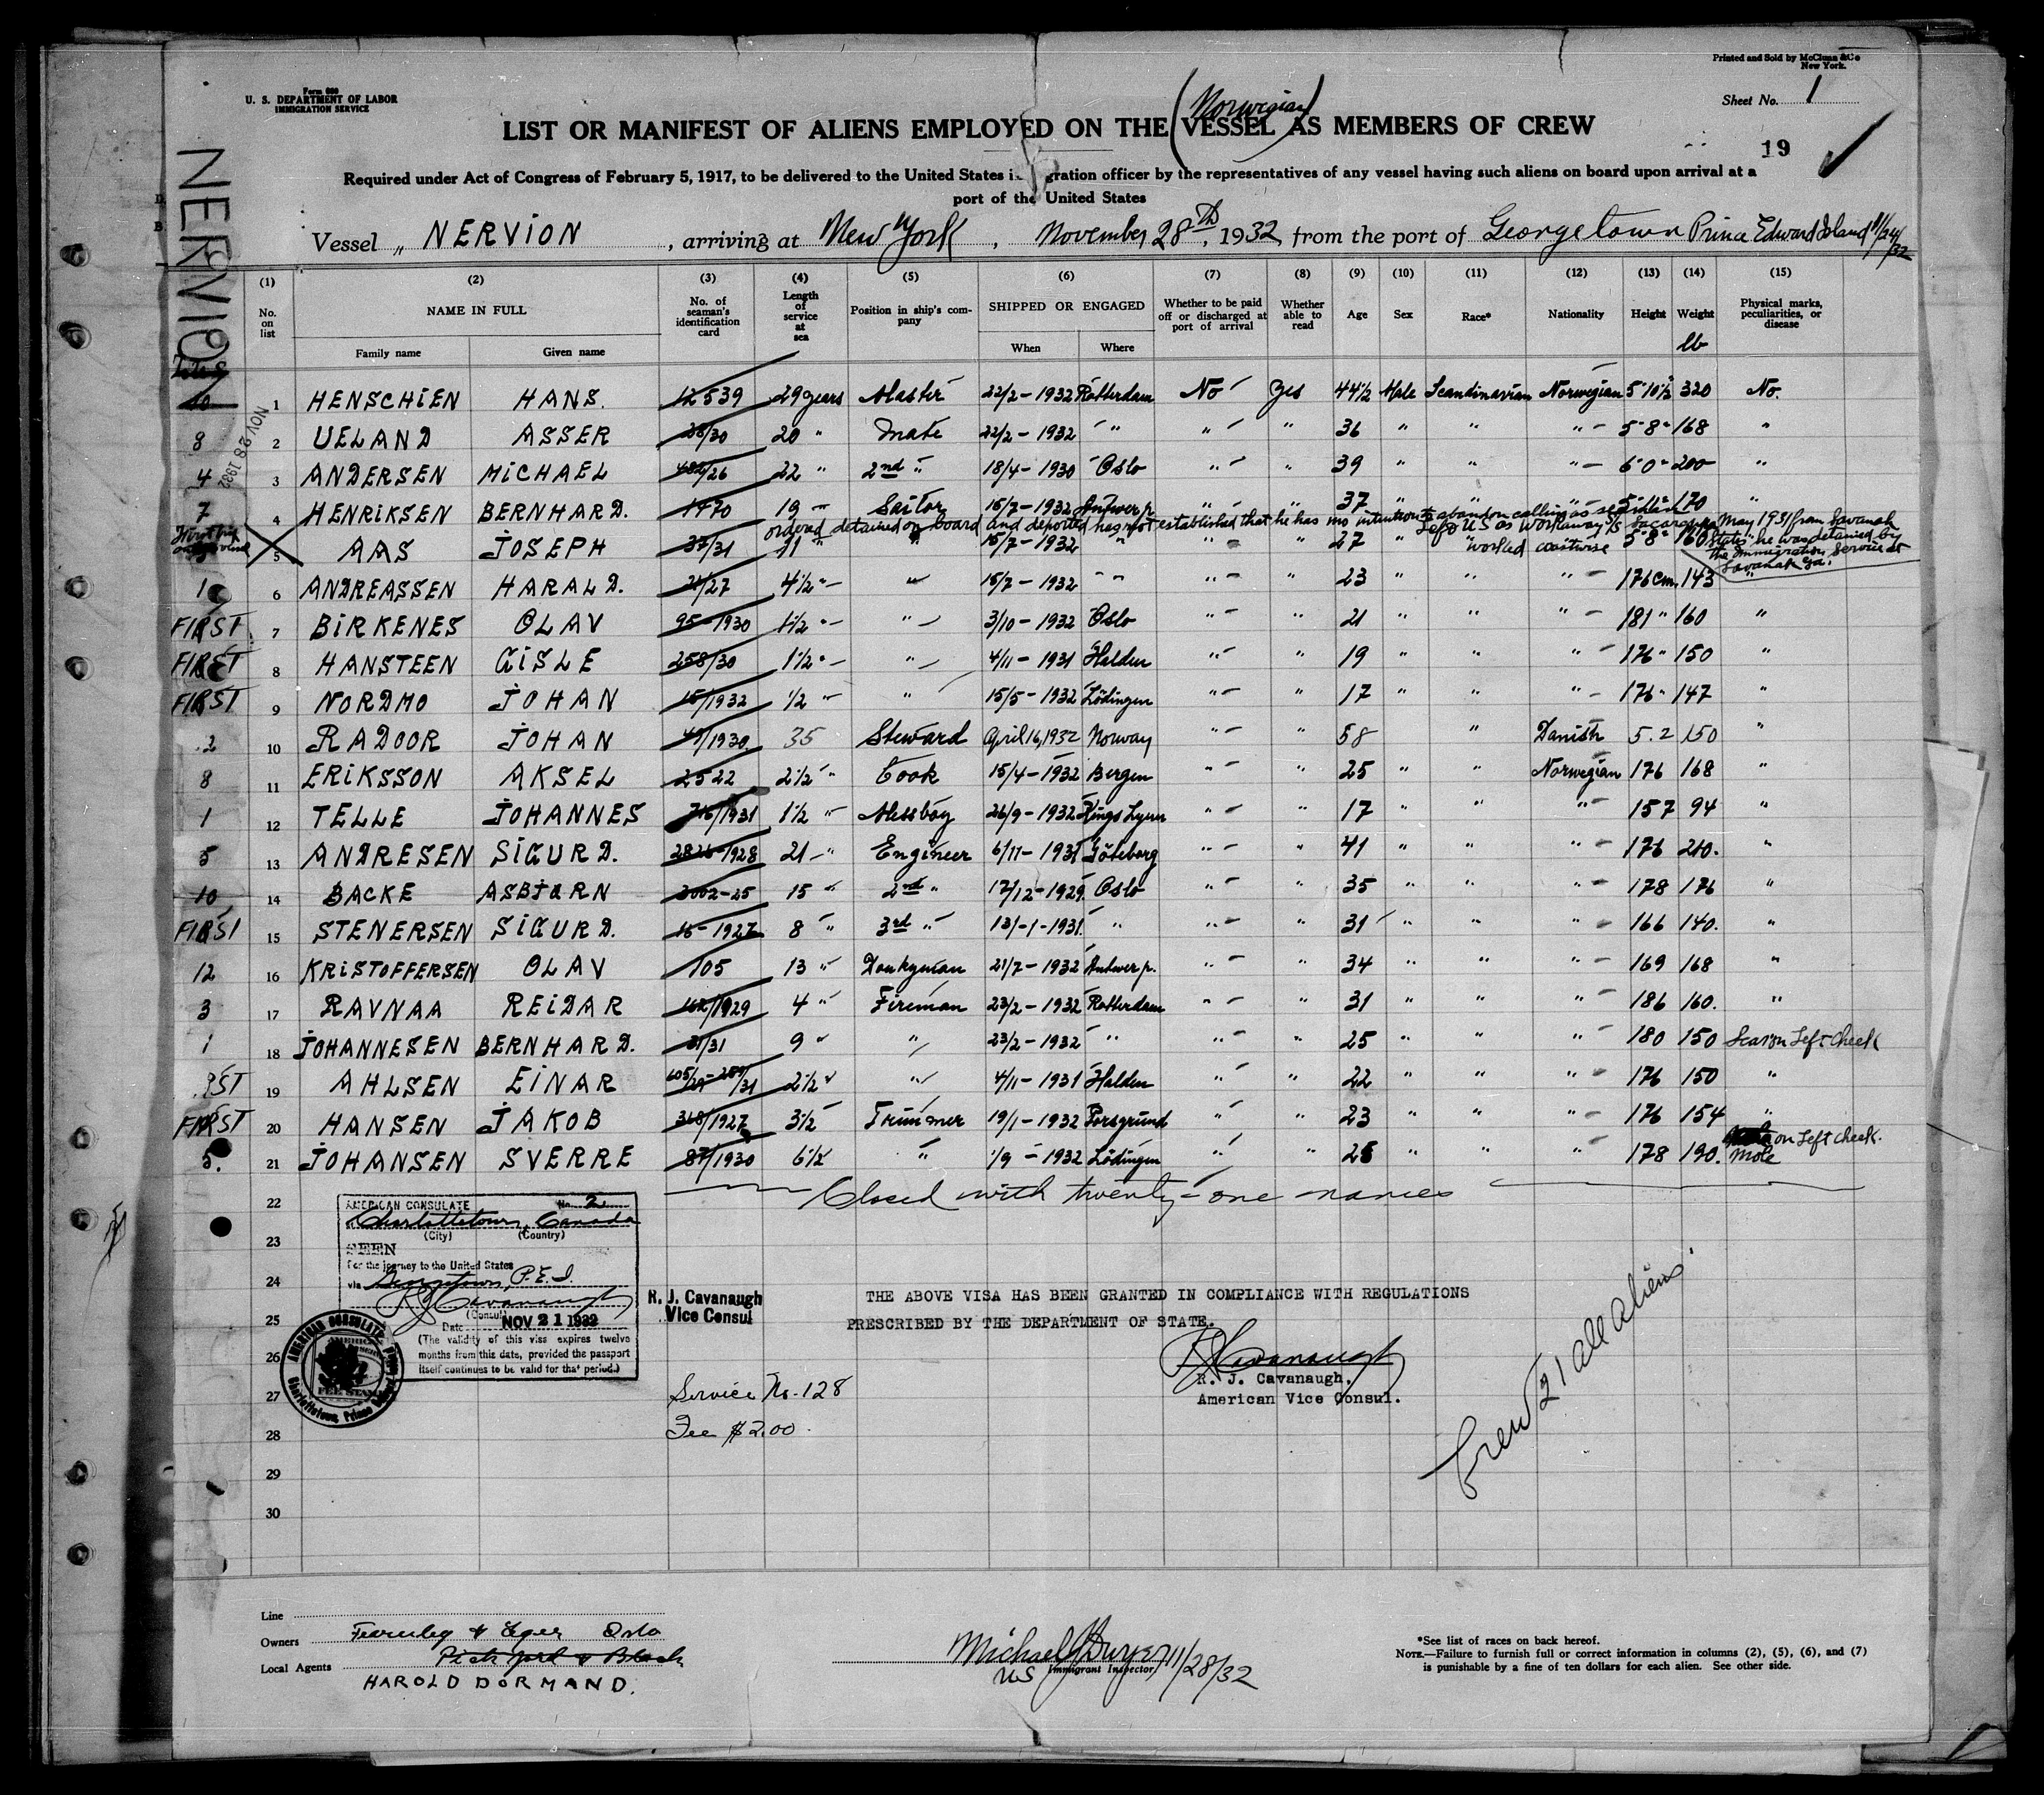 Printed and Sold by McClunn & Co
New York.
Form 680
U. S. DEPARTMENT OF LABOR
IMMIGRATION SERVICE
Sheet No. 1
(Norwegian)
LIST OR MANIFEST OF ALIENS EMPLOYED ON THE VESSEL AS MEMBERS OF CREW
19
Required under Act of Congress of February 5, 1917, to be delivered to the United States i gration officer by the representatives of any vessel having such aliens on board upon arrival at a
port of the United States
NERVION
Vessel „ NERVION , arriving at New York , November 28th, 1932, from the port of Georgetown Prince Edward Island 11/24/32
(1) (2) (3) (4) (5) (6) (7) (8) (9) (10) (11) (12) (13) (14) (15)
No. on list
NAME IN FULL
Family name
Given name
No. of seaman's identification card
Length of service at sea
Position in ship's company
SHIPPED OR ENGAGED
When
Where
Whether to be paid off or discharged at port of arrival
Whether able to read
Age
Sex
Race*
Nationality
Height
Weight
lb
Physical marks, peculiarities, or disease
NOV 28 1932
10 1 HENSCHIEN HANS. 12539 29 years Master 22/2-1932 Rotterdam No Yes 44½ Male Scandinavian Norwegian 5'10½ 320 No.
8 2 UELAND ASSER 28/30 20 " Mate 22/2-1932 " " " 36 " " " 5-8" 168 "
4 3 ANDERSEN MICHAEL 482/26 22 " 2nd " 18/4-1930 Oslo " " 39 " " " 6-0" 200 "
7 4 HENRIKSEN BERNHARD. 1470 19 " Sailor 15/7-1932 Antwerp " " 37 " " " 170 "
ordered detained on board and deported has not established that he has no intention to abandon calling as seaman
left US as workaway May 1931 from Savanah
5 AAS JOSEPH 37/31 11 " " 15/7-1932 " " " 27 " worked coastwise 5-8" 160 States he was detained by
the Immigration Service at
Savanah Ga.
1 6 ANDREASSEN HARALD. 21/27 4½ " " 15/7-1932 " " " 23 " " " 176 cm. 143 "
FIRST 7 BIRKENES OLAV 95-1930 1½ " " 3/10-1932 Oslo " " 21 " " " 181 " 160 "
FIRST 8 HANSTEEN GISLE 258/30 1½ " " 4/11-1931 Halden " " 19 " " " 176 " 150 "
FIRST 9 NORDMO JOHAN 15/1932 ½ " " 15/5-1932 Lödingen " " 17 " " " 176 " 147 "
2 10 RADOOR JOHAN 49/1930 35 Steward April 16, 1932 Norway " " 58 " Danish 5.2 150 "
8 11 ERIKSSON AKSEL 2522 2½ " Cook 15/4-1932 Bergen " " 25 " " Norwegian 176 168 "
1 12 TELLE JOHANNES 716/1931 1½ " Messboy 26/9-1932 Kings Lynn " " 17 " " 157 94 "
5 13 ANDRESEN SIGURD. 2826-1928 21 " Engineer 6/11-1931 Göteborg " " 41 " " " 176 210. "
10 14 BACKE ASBJØRN 3002-25 15 " 2nd " 17/12-1929. Oslo " " 35 " " " 178 176 "
FIRST 15 STENERSEN SIGURD. 16-1927 8 " 3rd " 13/-1-1931. " " " 31 " " " 166 140. "
12 16 KRISTOFFERSEN OLAV 105 13 " Donkyman 21/7-1932 Antwerp. " " 34 " " " 169 168 "
3 17 RAVNAA REIDAR 162/1929 4 " Fireman 23/2-1932 Rotterdam " " 31 " " " 186 160. "
1 18 JOHANNESEN BERNHARD. 31/31 9 " " 23/2-1932 " " " 25 " " " 180 150 Scar on Left Cheek
1ST 19 AHLSEN EINAR 2½ " " 4/11-1931 Halden " " 22 " " " 176 150 "
FIRST 20 HANSEN JAKOB 368/1927 3½ Trimmer 19/1-1932 Porsgrund " " 23 " " " 176 154 "
5. 21 JOHANSEN SVERRE 87/1930 6½ " 1/9-1932 Lödingen " " 25 " " " 178 190. Mole on Left cheek.
22 Closed with twenty-one names
23
24
25
26
27
28
29
30
AMERICAN CONSULATE No. 2
Charlottetown, Canada
(City) (Country)
SEEN
For the journey to the United States
via Georgetown, P.E.I.
R J Cavanaugh
(Consul)
Date NOV 21 1932
(The validity of this visa expires twelve
months from this date, provided the passport
itself continues to be valid for that period.)
R. J. Cavanaugh
Vice Consul
AMERICAN CONSULATE
Charlottetown, Prince
FEE STAMP
THE ABOVE VISA HAS BEEN GRANTED IN COMPLIANCE WITH REGULATIONS
PRESCRIBED BY THE DEPARTMENT OF STATE.
R J Cavanaugh
R. J. Cavanaugh,
American Vice Consul.
Service No. 128
Fee $2.00
Crew 21 all aliens
Line
Owners Fearnley & Eger Oslo
Local Agents Pickford & Black
HAROLD DORMAND.
Michael J Dwyer 11/28/32
US Immigrant Inspector
*See list of races on back hereof.
NOTE.—Failure to furnish full or correct information in columns (2), (5), (6), and (7)
is punishable by a fine of ten dollars for each alien. See other side.